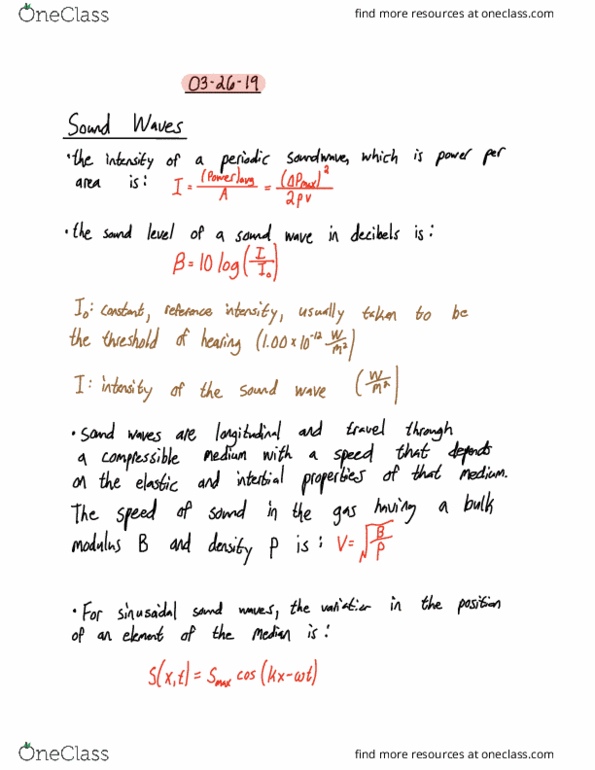 OneClass
find more resources at oneclass.com
03-26-19
Sound Waves
• the intensity of a periodic soundwave, which is power per
area is: I = (Power)avg / A = (ΔPmax)² / 2ρv
• the sound level of a sound wave in decibels is:
β = 10 log (I / I₀)
I₀: constant, reference intensity, usually taken to be
the threshold of hearing (1.00 × 10⁻¹² W/m²)
I: intensity of the sound wave (W/m²)
• sound waves are longitudinal and travel through
a compressible medium with a speed that depends
on the elastic and intertial properties of that medium.
The speed of sound in the gas having a bulk
modulus B and density ρ is: V = √(B/ρ)
• For sinusoidal sound waves, the variation in the position
of an element of the median is:
S(x,t) = Smax cos (kx - ωt)
OneClass
find more resources at oneclass.com